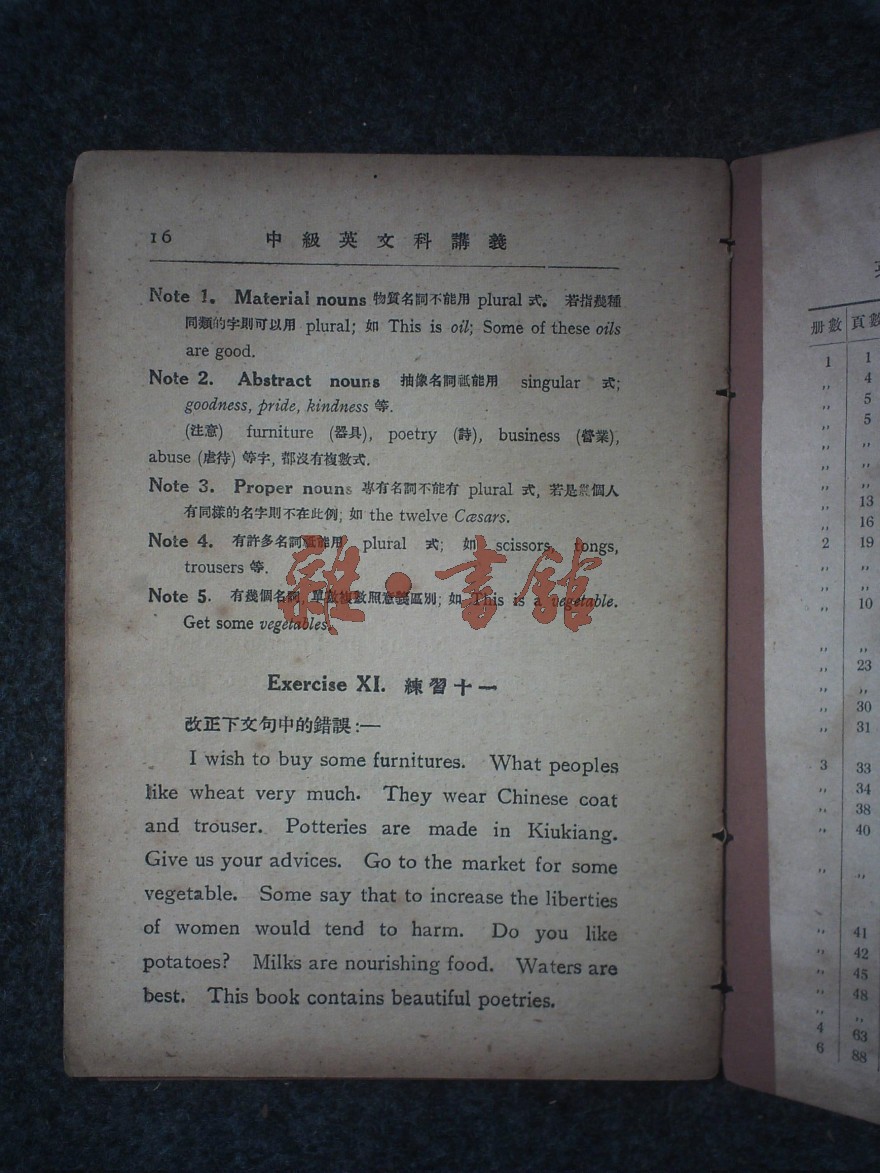 16 中級英文科講義
Note 1. Material nouns 物質名詞不能用 plural 式。 若指幾種
同類的字則可以用 plural; 如 This is oil; Some of these oils
are good.
Note 2. Abstract nouns 抽像名詞祗能用 singular 式;
goodness, pride, kindness 等.
(注意) furniture (器具), poetry (詩), business (營業),
abuse (虐待) 等字, 都沒有複數式.
Note 3. Proper nouns 專有名詞不能有 plural 式, 若是幾個人
有同樣的名字則不在此例; 如 the twelve Cæsars.
Note 4. 有許多名詞祗能用 plural 式; 如 scissors, tongs,
trousers 等.
Note 5. 有幾個名詞, 單數複數照意義區別; 如 This is a vegetable.
Get some vegetables.
雜·書館
Exercise XI. 練習十一
改正下文句中的錯誤:—
I wish to buy some furnitures. What peoples
like wheat very much. They wear Chinese coat
and trouser. Potteries are made in Kiukiang.
Give us your advices. Go to the market for some
vegetable. Some say that to increase the liberties
of women would tend to harm. Do you like
potatoes? Milks are nourishing food. Waters are
best. This book contains beautiful poetries.
册數 頁數
1 1
,, 4
,, 5
,, 5
,, ,,
,, ,,
,, ,,
,, 13
,, 16
2 19
,, ,,
,, ,,
,, 10
,, ,,
,, 23
,, ,,
,, 30
,, 31
3 33
,, 34
,, 38
,, 40
,, ,,
,, 41
,, 42
,, 45
,, 48
,, ,,
4 63
6 88